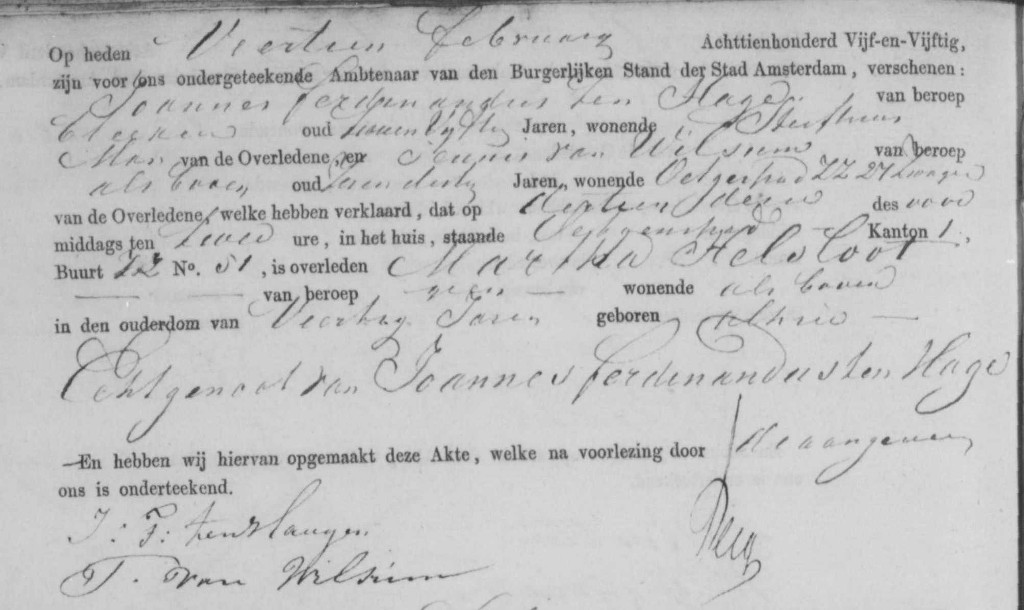 Op heden Veertien februarij Achttienhonderd Vijf-en-Vijftig,
zijn voor ons ondergeteekende Ambtenaar van den Burgerlijken Stand der Stad Amsterdam, verschenen:
Joannes Ferdinandus ten Hage van beroep
oud Jaren, wonende
Man van de Overledene, en Teunis van Wilsum van beroep
als boven oud Jaren, wonende ZZ 27
van de Overledene, welke hebben verklaard, dat op dertien dezer des voor
middags ten twee ure, in het huis, staande Kanton 1,
Buurt ZZ No. 51, is overleden Martha Helsloot
van beroep geen wonende als boven
in den ouderdom van Veertig Jaren geboren alhier
Echtgenoot van Joannes Ferdinandus ten Hage
En hebben wij hiervan opgemaakt deze Akte, welke na voorlezing door de aangevers
ons is onderteekend.
J: F: ten Haagen
T. van Wilsum